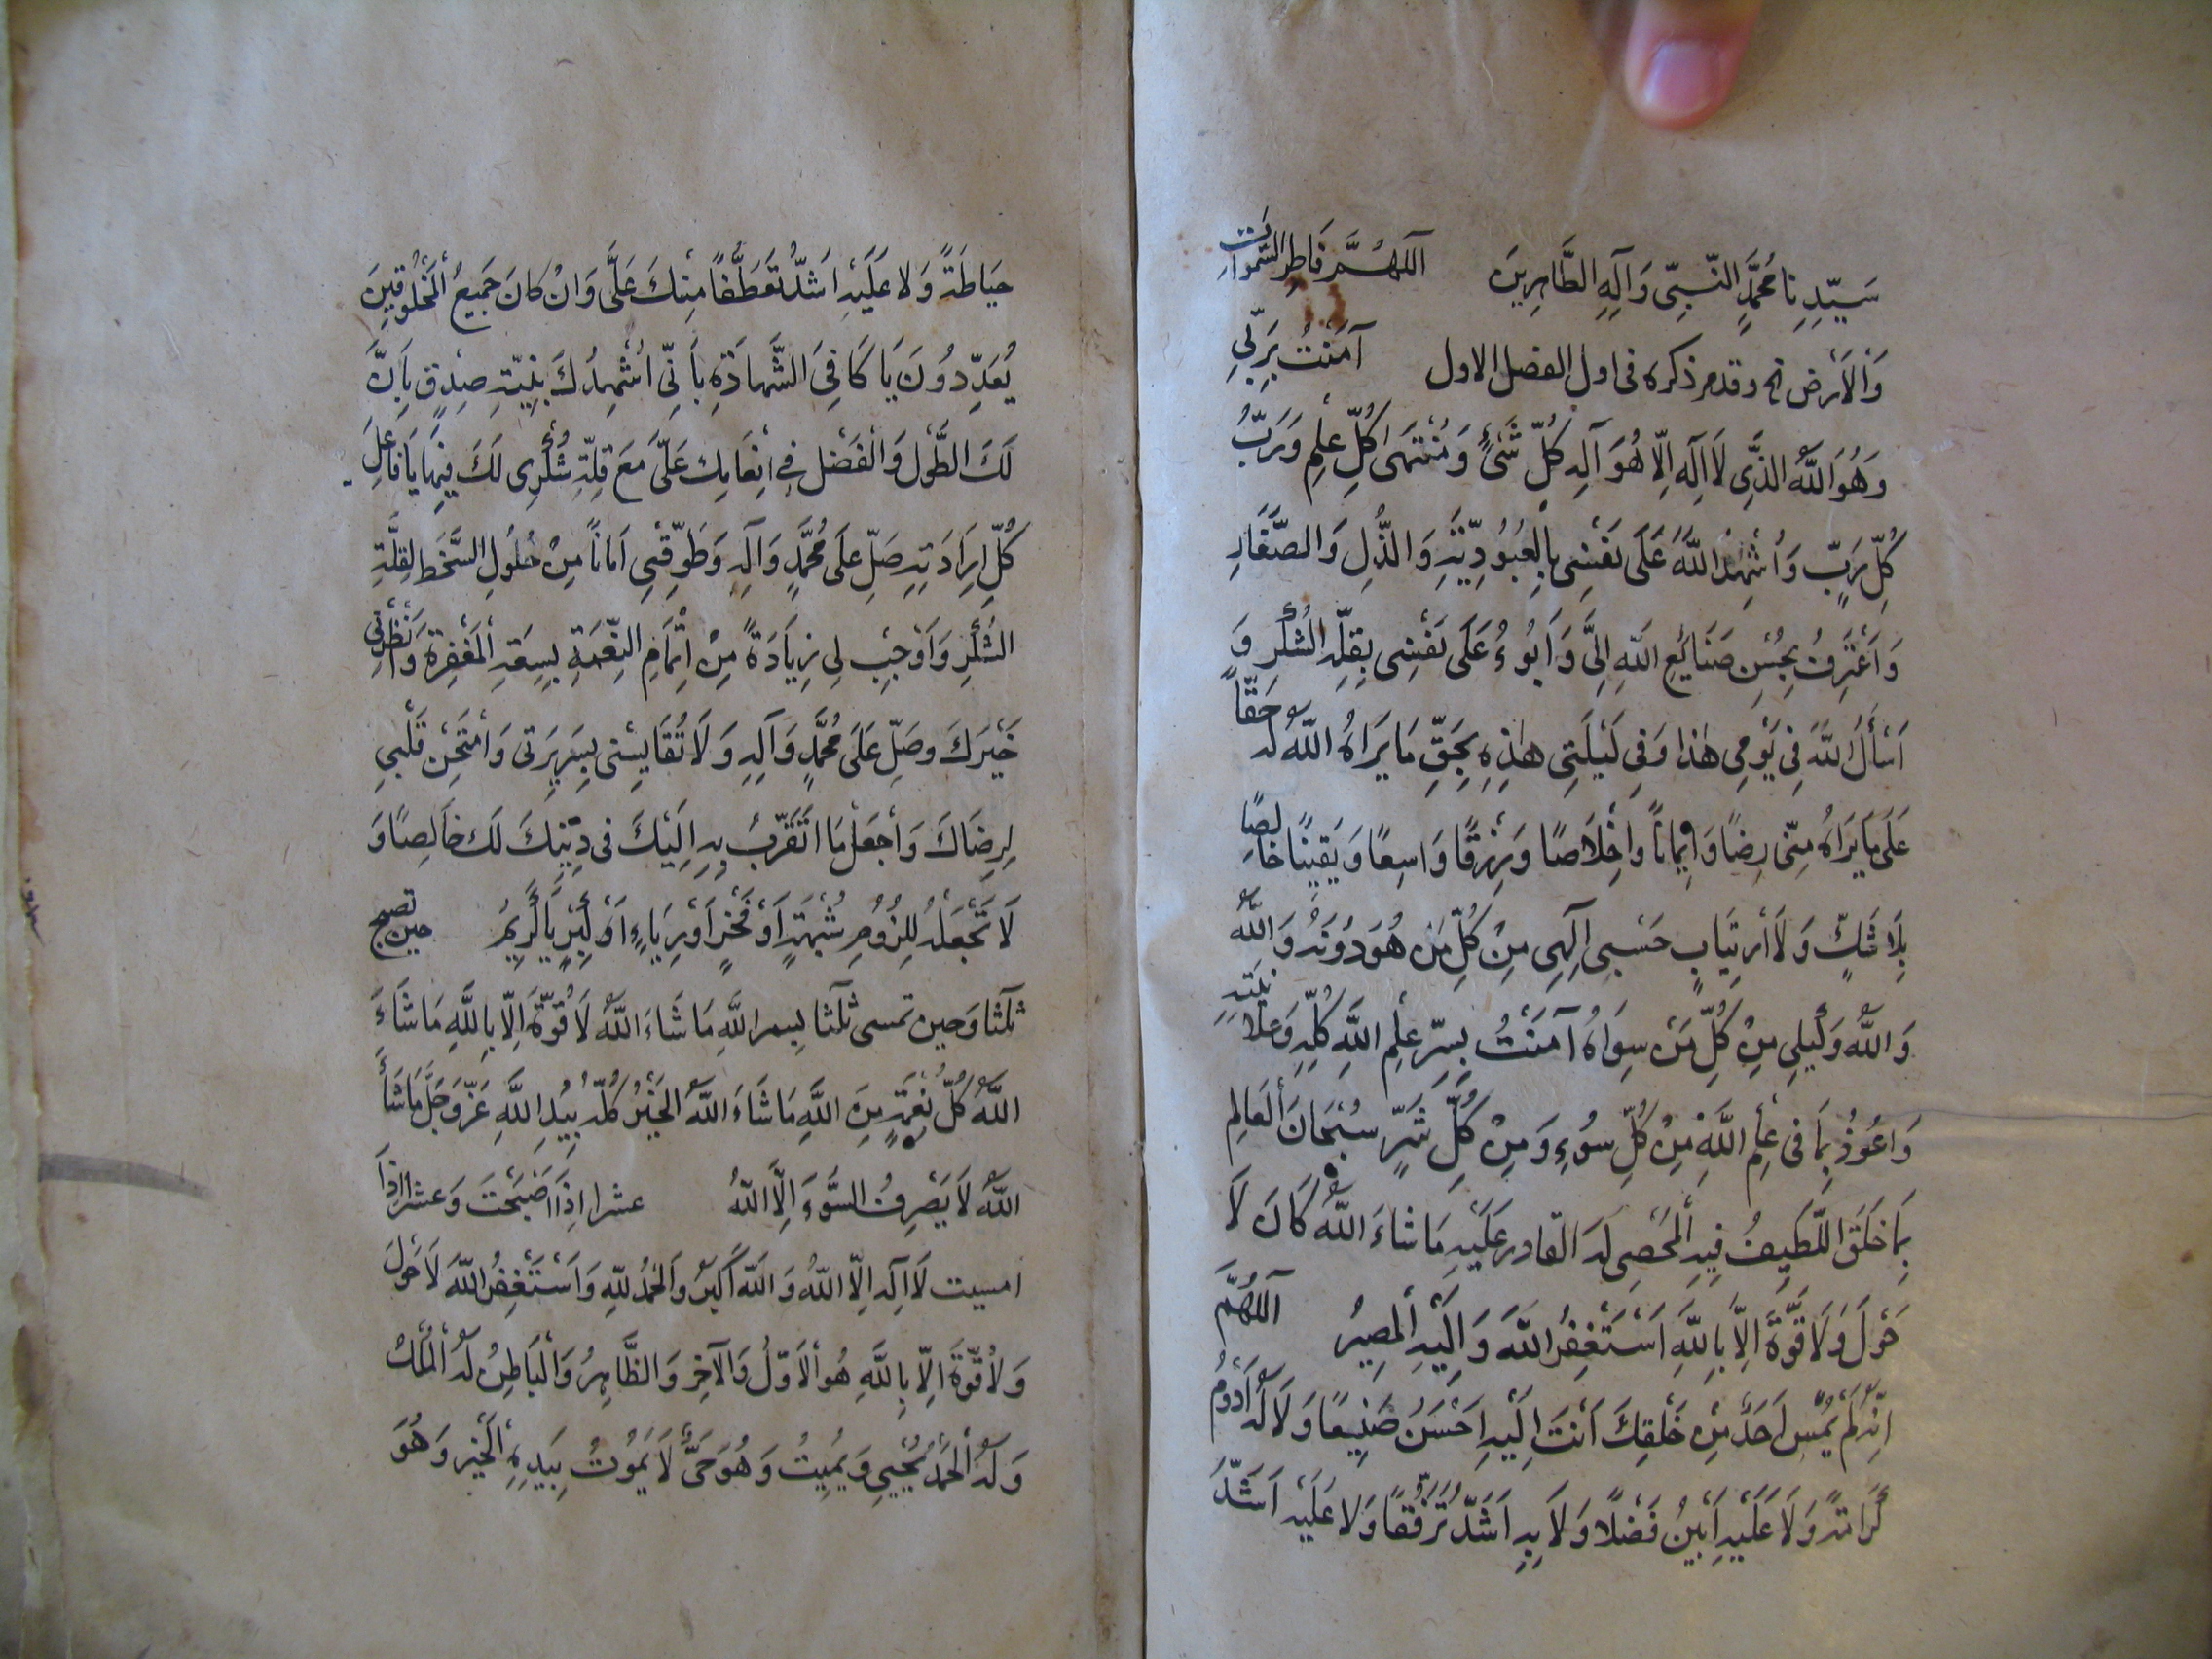 سَيِّدِنَا مُحَمَّدٍ النَّبِىِّ وَآلِهِ الطَّاهِرِينَ اَللّٰهُمَّ فَاطِرَ السَّمٰوَاتِ
وَالْاَرْضِ الخ وقد مر ذكره فى اول الفصل الاول آمَنْتُ بِرَبِّي
وَهُوَ اللّٰهُ الَّذِى لَا اِلٰهَ اِلَّا هُوَ اِلٰهِ كُلِّ شَىْءٍ وَمُنْتَهَى كُلِّ عِلْمٍ وَرَبِّ
كُلِّ رَبٍّ وَاُشْهِدُ اللّٰهَ عَلَى نَفْسِى بِالْعُبُودِيَّةِ وَالذُّلِّ وَالصَّغَارِ
وَاَعْتَرِفُ بِحُسْنِ صَنَائِعِ اللّٰهِ اِلَىَّ وَاَبُوءُ عَلَى نَفْسِى بِقِلَّةِ الشُّكْرِ وَ
اَسْأَلُ اللّٰهَ فِى يَوْمِى هٰذَا وَفِى لَيْلَتِى هٰذِهِ بِحَقِّ مَا يَرَاهُ اللّٰهُ لَهُ حَقًّا
عَلَى مَا يَرَاهُ مِنِّى رِضًا وَاِيمَانًا وَاِخْلَاصًا وَرِزْقًا وَاسِعًا وَيَقِينًا خَالِصًا
بِلَا شَكٍّ وَلَا ارْتِيَابٍ حَسْبِى اِلٰهِى مِنْ كُلِّ مَنْ هُوَ دُونَهُ وَاللّٰهُ
وَاللّٰهُ وَكِيلِى مِنْ كُلِّ مَنْ سِوَاهُ آمَنْتُ بِسِرِّ عِلْمِ اللّٰهِ كُلِّهِ وَعَلَانِيَتِهِ
وَاَعُوذُ بِمَا فِى عِلْمِ اللّٰهِ مِنْ كُلِّ سُوءٍ وَمِنْ كُلِّ شَرٍّ سُبْحَانَ الْعَالِمِ
بِمَا خَلَقَ اللَّطِيفُ فِيهِ الْمُحْصِى لَهُ الْقَادِرِ عَلَيْهِ مَا شَاءَ اللّٰهُ كَانَ لَا
حَوْلَ وَلَا قُوَّةَ اِلَّا بِاللّٰهِ اَسْتَغْفِرُ اللّٰهَ وَاِلَيْهِ الْمَصِيرُ اَللّٰهُمَّ
اِنَّهُ لَمْ يُمْسِ اَحَدٌ مِنْ خَلْقِكَ اَنْتَ اِلَيْهِ اَحْسَنُ صَنِيعًا وَلَا لَهُ اَدْوَمُ
كَرَامَةً وَلَا عَلَيْهِ اَبْيَنُ فَضْلًا وَلَا بِهِ اَشَدُّ تَرَفُّقًا وَلَا عَلَيْهِ اَشَدُّ
حِيَاطَةً وَلَا عَلَيْهِ اَشَدُّ تَعَطُّفًا مِنْكَ عَلَىَّ وَاِنْ كَانَ جَمِيعُ الْمَخْلُوقِينَ
يُعَدِّدُونَ يَا كَافِىَ الشَّهَادَةِ بِاَنِّى اُشْهِدُكَ بِنِيَّةِ صِدْقٍ بِاَنَّ
لَكَ الطَّوْلَ وَالْفَضْلَ فِى اِنْعَامِكَ عَلَىَّ مَعَ قِلَّةِ شُكْرِى لَكَ فِيهَا يَا فَاعِلَ
كُلِّ اِرَادَتِهِ صَلِّ عَلَى مُحَمَّدٍ وَآلِهِ وَطَوِّقْنِى اَمَانًا مِنْ حُلُولِ السَّخَطِ لِقِلَّةِ
الشُّكْرِ وَاَوْجِبْ لِى زِيَادَةً مِنْ اِتْمَامِ النِّعْمَةِ بِسِعَةِ الْمَغْفِرَةِ وَاَنْظِرْنِى
خَيْرَكَ وَصَلِّ عَلَى مُحَمَّدٍ وَآلِهِ وَلَا تُقَايِسْنِى بِسَرِيرَتِى وَامْتَحِنْ قَلْبِى
لِرِضَاكَ وَاجْعَلْ مَا اَتَقَرَّبُ بِهِ اِلَيْكَ فِى دِينِكَ لَكَ خَالِصًا وَ
لَا تَجْعَلْهُ لِلُزُومِ شُبْهَةٍ اَوْ فَخْرٍ اَوْ رِيَاءٍ اَوْ كِبْرٍ يَا كَرِيمُ حين تصبح
ثلٰثا وَحين تمسى ثلٰثا بسم اللّٰهِ مَا شَاءَ اللّٰهُ لَا قُوَّةَ اِلَّا بِاللّٰهِ مَا شَاءَ
اللّٰهُ كُلُّ نِعْمَةٍ مِنَ اللّٰهِ مَا شَاءَ اللّٰهُ الْخَيْرُ كُلُّهُ بِيَدِ اللّٰهِ عَزَّ وَجَلَّ مَا شَاءَ
اللّٰهُ لَا يَصْرِفُ السُّوءَ اِلَّا اللّٰهُ عشرا اِذَا اَصْبَحْتَ وَعشرا اِذَا
امسيت لَا اِلٰهَ اِلَّا اللّٰهُ وَاللّٰهُ اَكْبَرُ وَالْحَمْدُ لِلّٰهِ وَاَسْتَغْفِرُ اللّٰهَ لَا حَوْلَ
وَلَا قُوَّةَ اِلَّا بِاللّٰهِ هُوَ الْاَوَّلُ وَالْآخِرُ وَالظَّاهِرُ وَالْبَاطِنُ لَهُ الْمُلْكُ
وَلَهُ الْحَمْدُ يُحْيِى وَيُمِيتُ وَهُوَ حَىٌّ لَا يَمُوتُ بِيَدِهِ الْخَيْرُ وَهُوَ